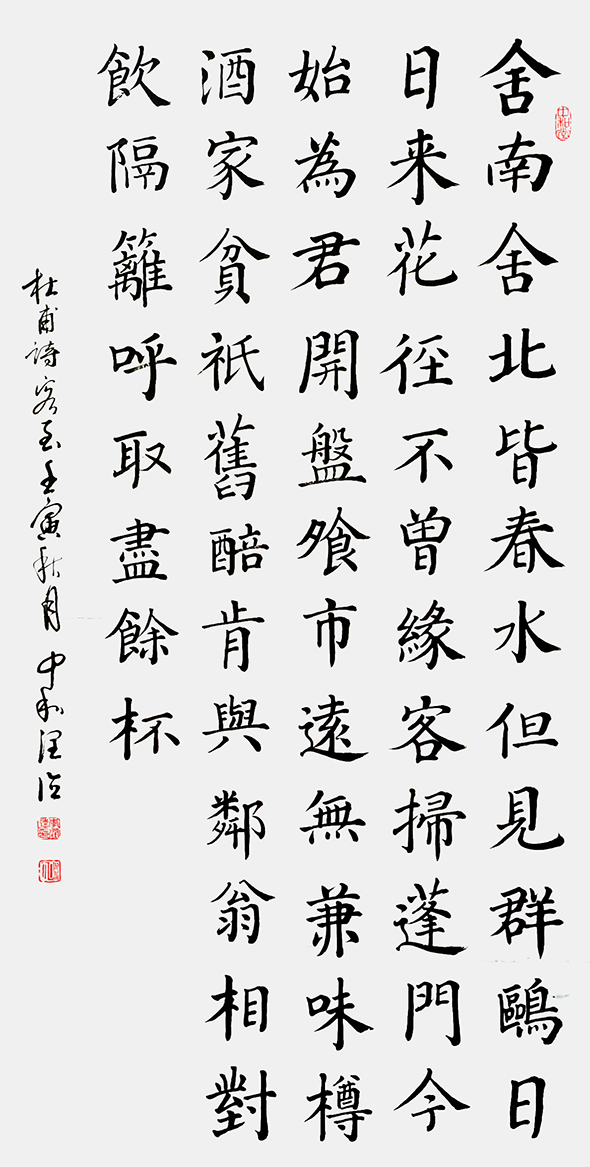 舍南舍北皆春水但見群鷗日
日来花径不曾緣客掃蓬門今
始為君開盤飧市遠無兼味樽
酒家貧祇舊醅肯與鄰翁相對
飲隔籬呼取盡餘杯
杜甫詩客至壬寅秋月 中和